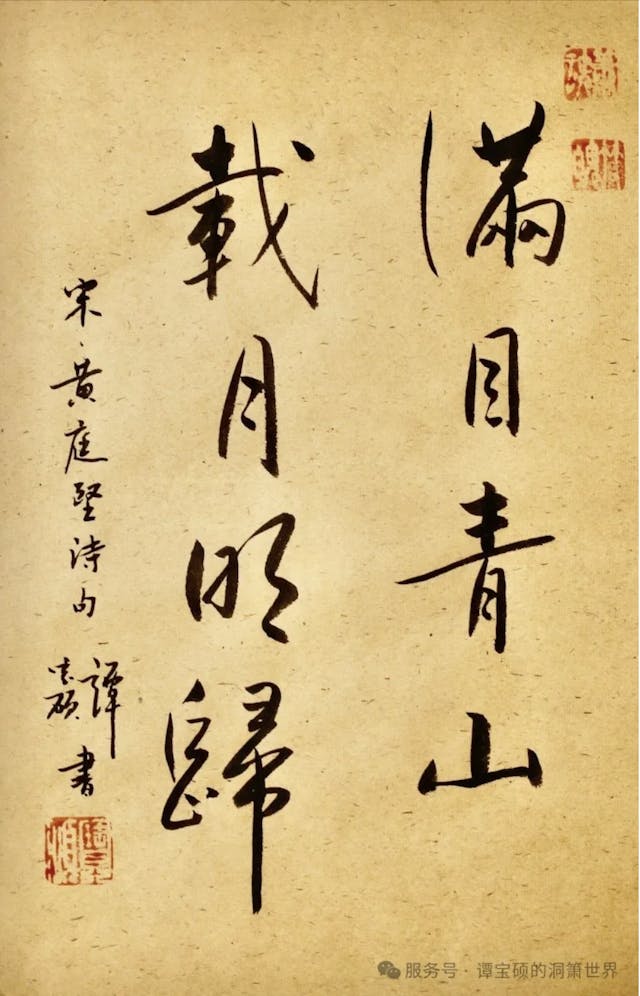 滿目青山
載月明歸
宋黃庭堅詩句
譚寶碩書
服务号·谭宝硕的洞箫世界